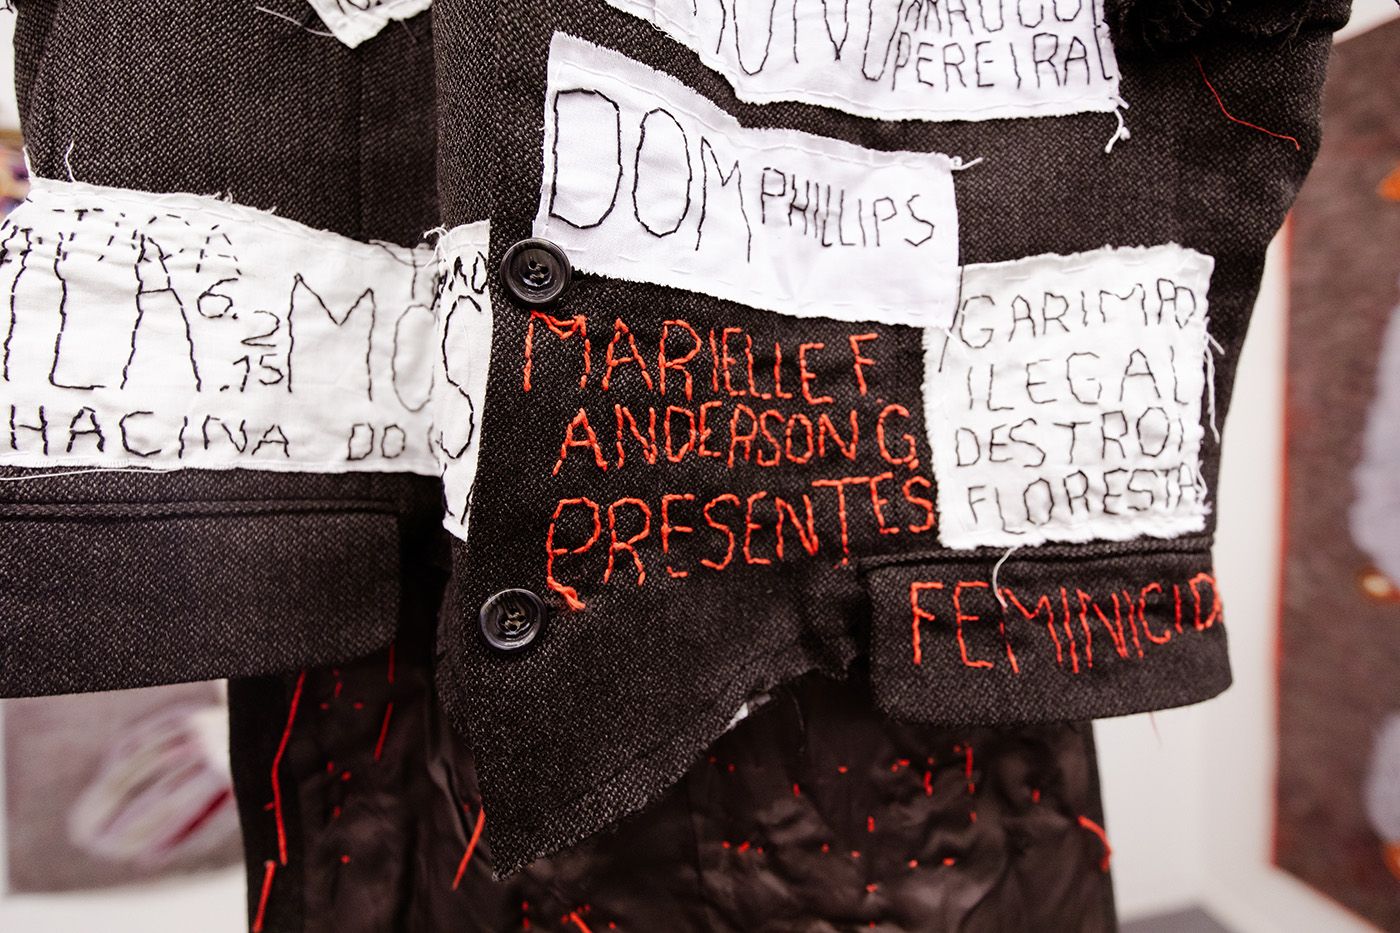 PEREIRA
DOM PHILLIPS
ILA 6.2.15 MO
HACINA DO
MARIELLE F.
ANDERSON G.
PRESENTES
GARIMPO
ILEGAL
DESTROI
FLORESTA
FEMINICID